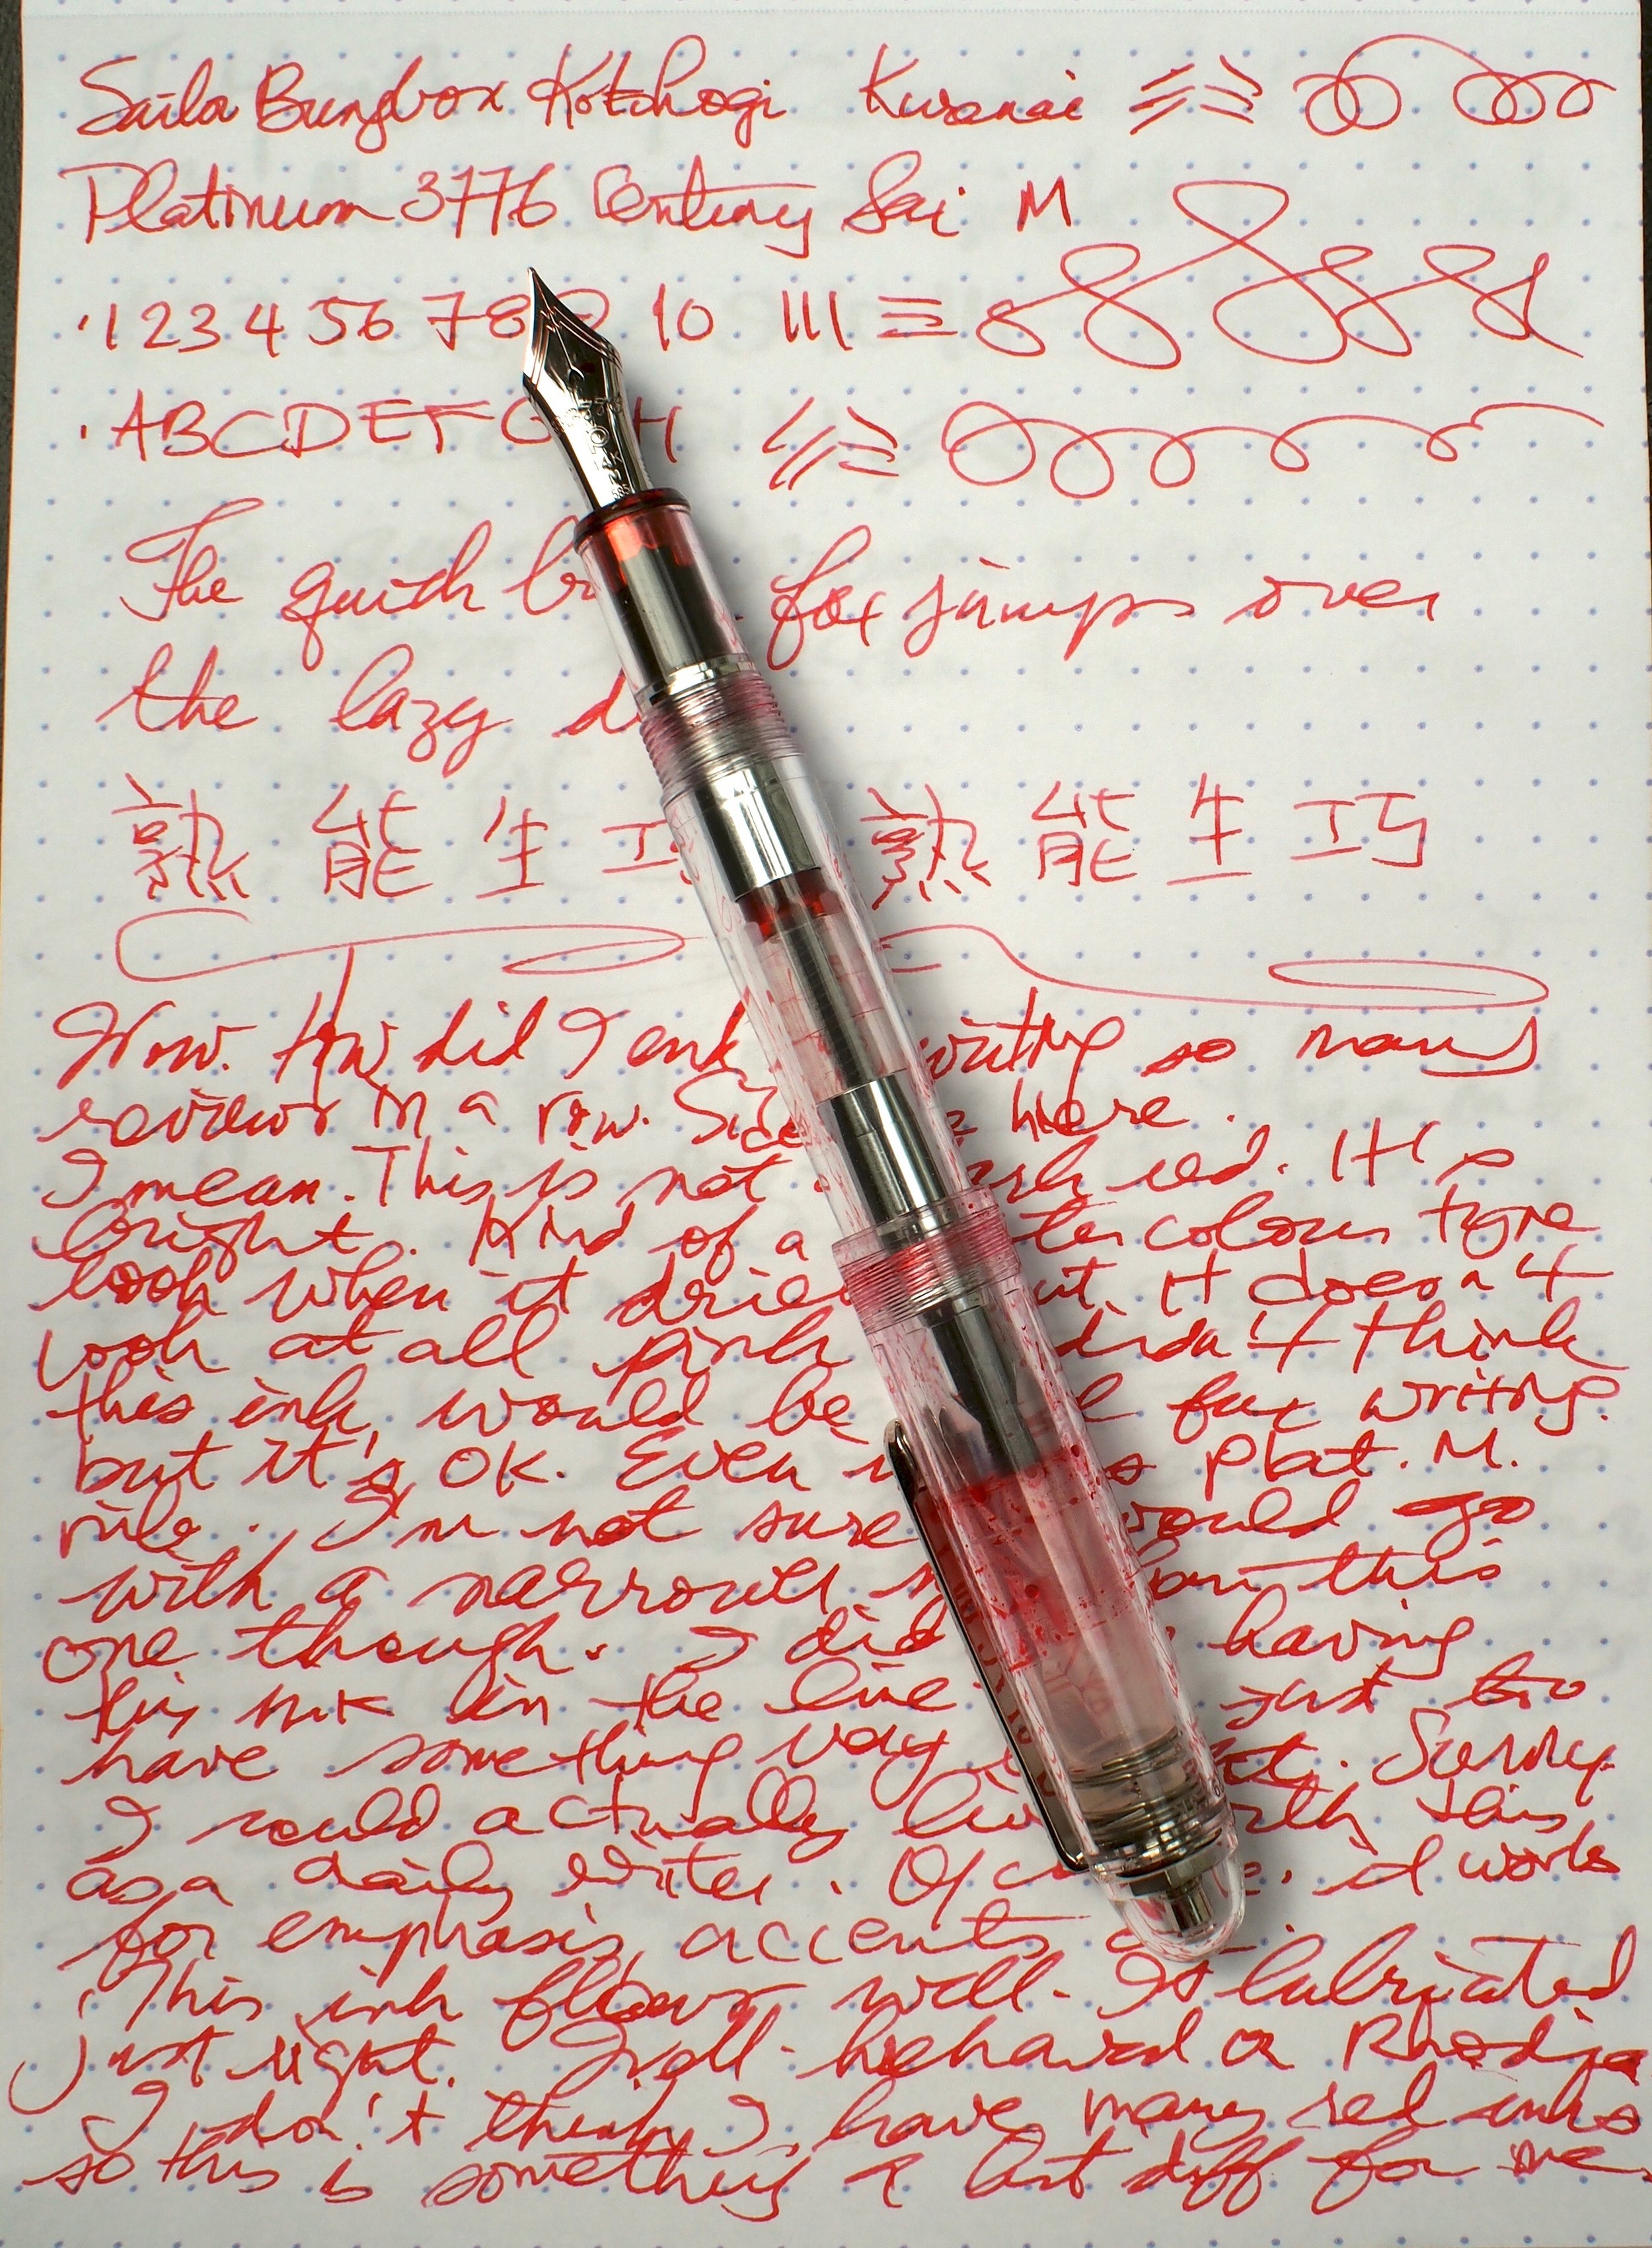 Sailor Bungbox Kwanai
Platinum 3776 Century Sai M
1 2 3 4 5 6 7 8 9 10
ABCDEFG H
The quick fox jumps over
the lazy
熟能生 熟能生巧
Wow. How did I writing so many
reviews in a row. here.
I mean. This is not red. It is
bright. Kind of a colour type
look when it it doesn't
look at all pink didn't think
this ink, would be for writing.
but it's OK. Even Plat. M.
nib. I'm not sure would go
with a narrower this
one though. I did having
this ink in the line just to
have something very Surely
I could actually this
as a daily writer. it works
for emphasis, accents
This ink flows well. Is lubricated
just right. Well-behaved on Rhodia
I don't think I have many red inks
so this is something a bit diff for me.
14K
585